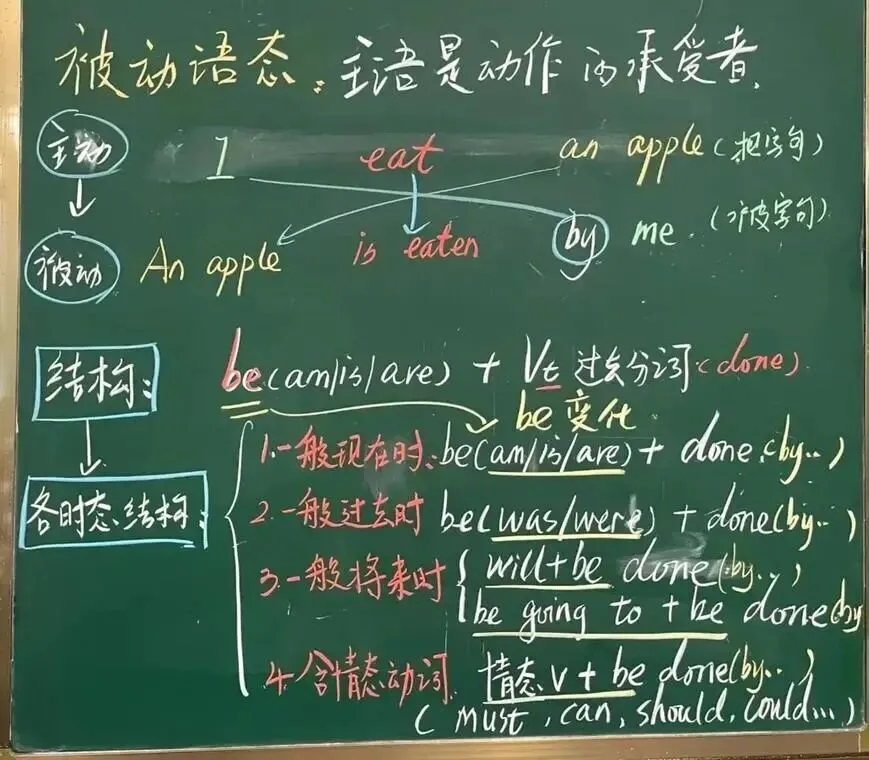 被动语态：主语是动作的承受者.
主动 I eat an apple (把字句)
被动 An apple is eaten by me. (被字句)
结构: be(am/is/are) + Vt 过去分词 (done)
be 变化
各时态结构:
1.一般现在时: be(am/is/are) + done (by...)
2.一般过去时 be(was/were) + done(by...)
3.一般将来时 will+be done(by...)
be going to + be done(by
4.含情态动词 情态v + be done(by...)
(must, can, should, could...)